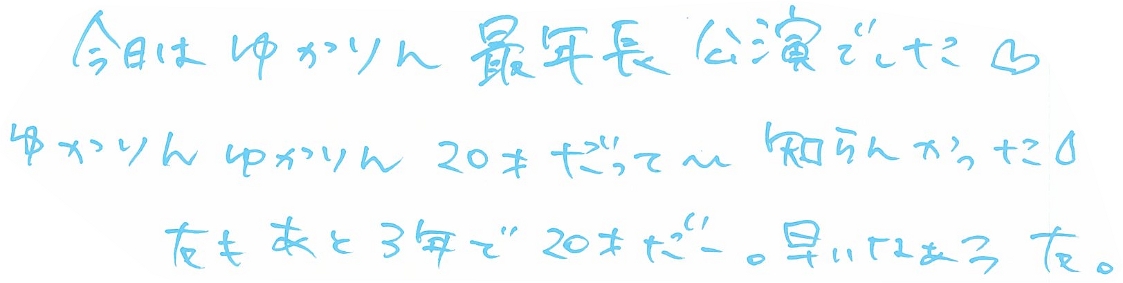 今日は ゆかりん 最年長 公演でした♡
ゆかりんゆかりん 20才だって〜 知らんかった
友もあと3年で20才だー。早いなぁう 友。